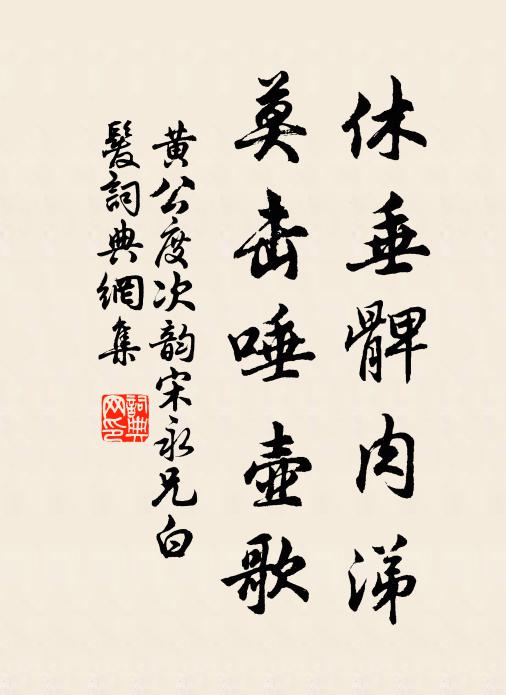 休垂髀肉涕
莫击唾壶歌
黄公度次韵宋永兄白
髮詞典網集
詞典网印